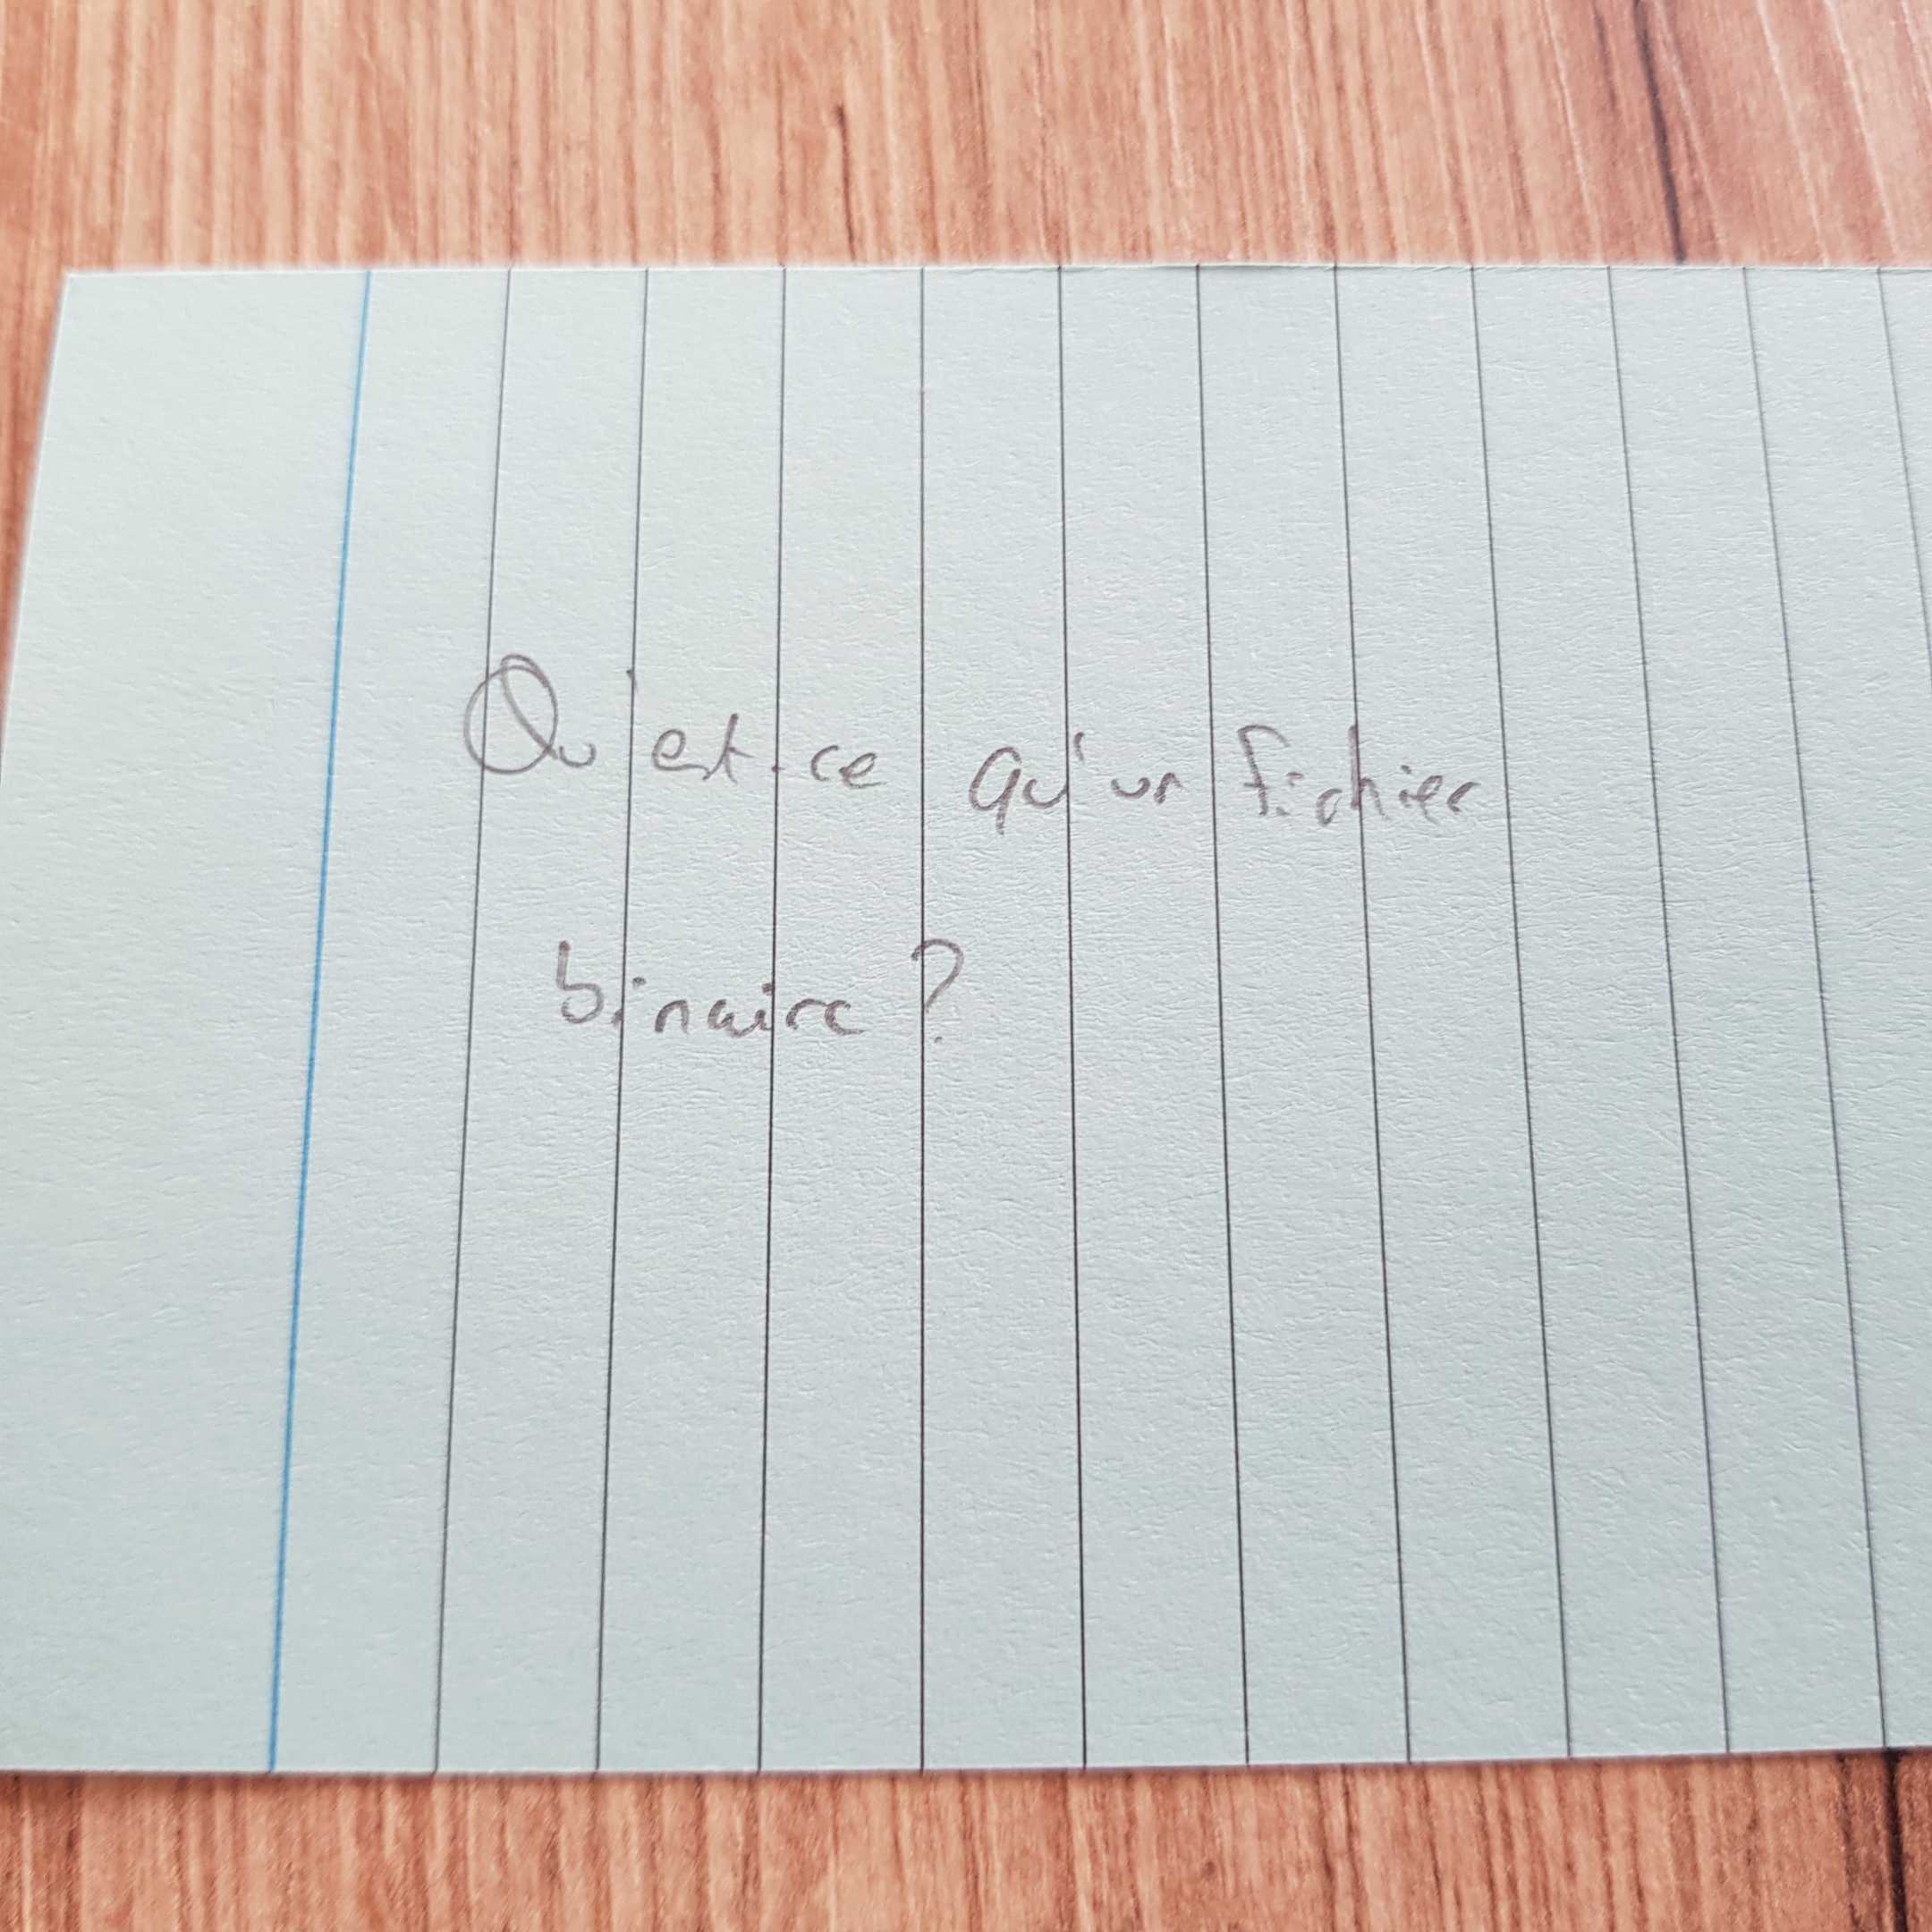 Qu'est-ce qu'un fichier
binaire ?